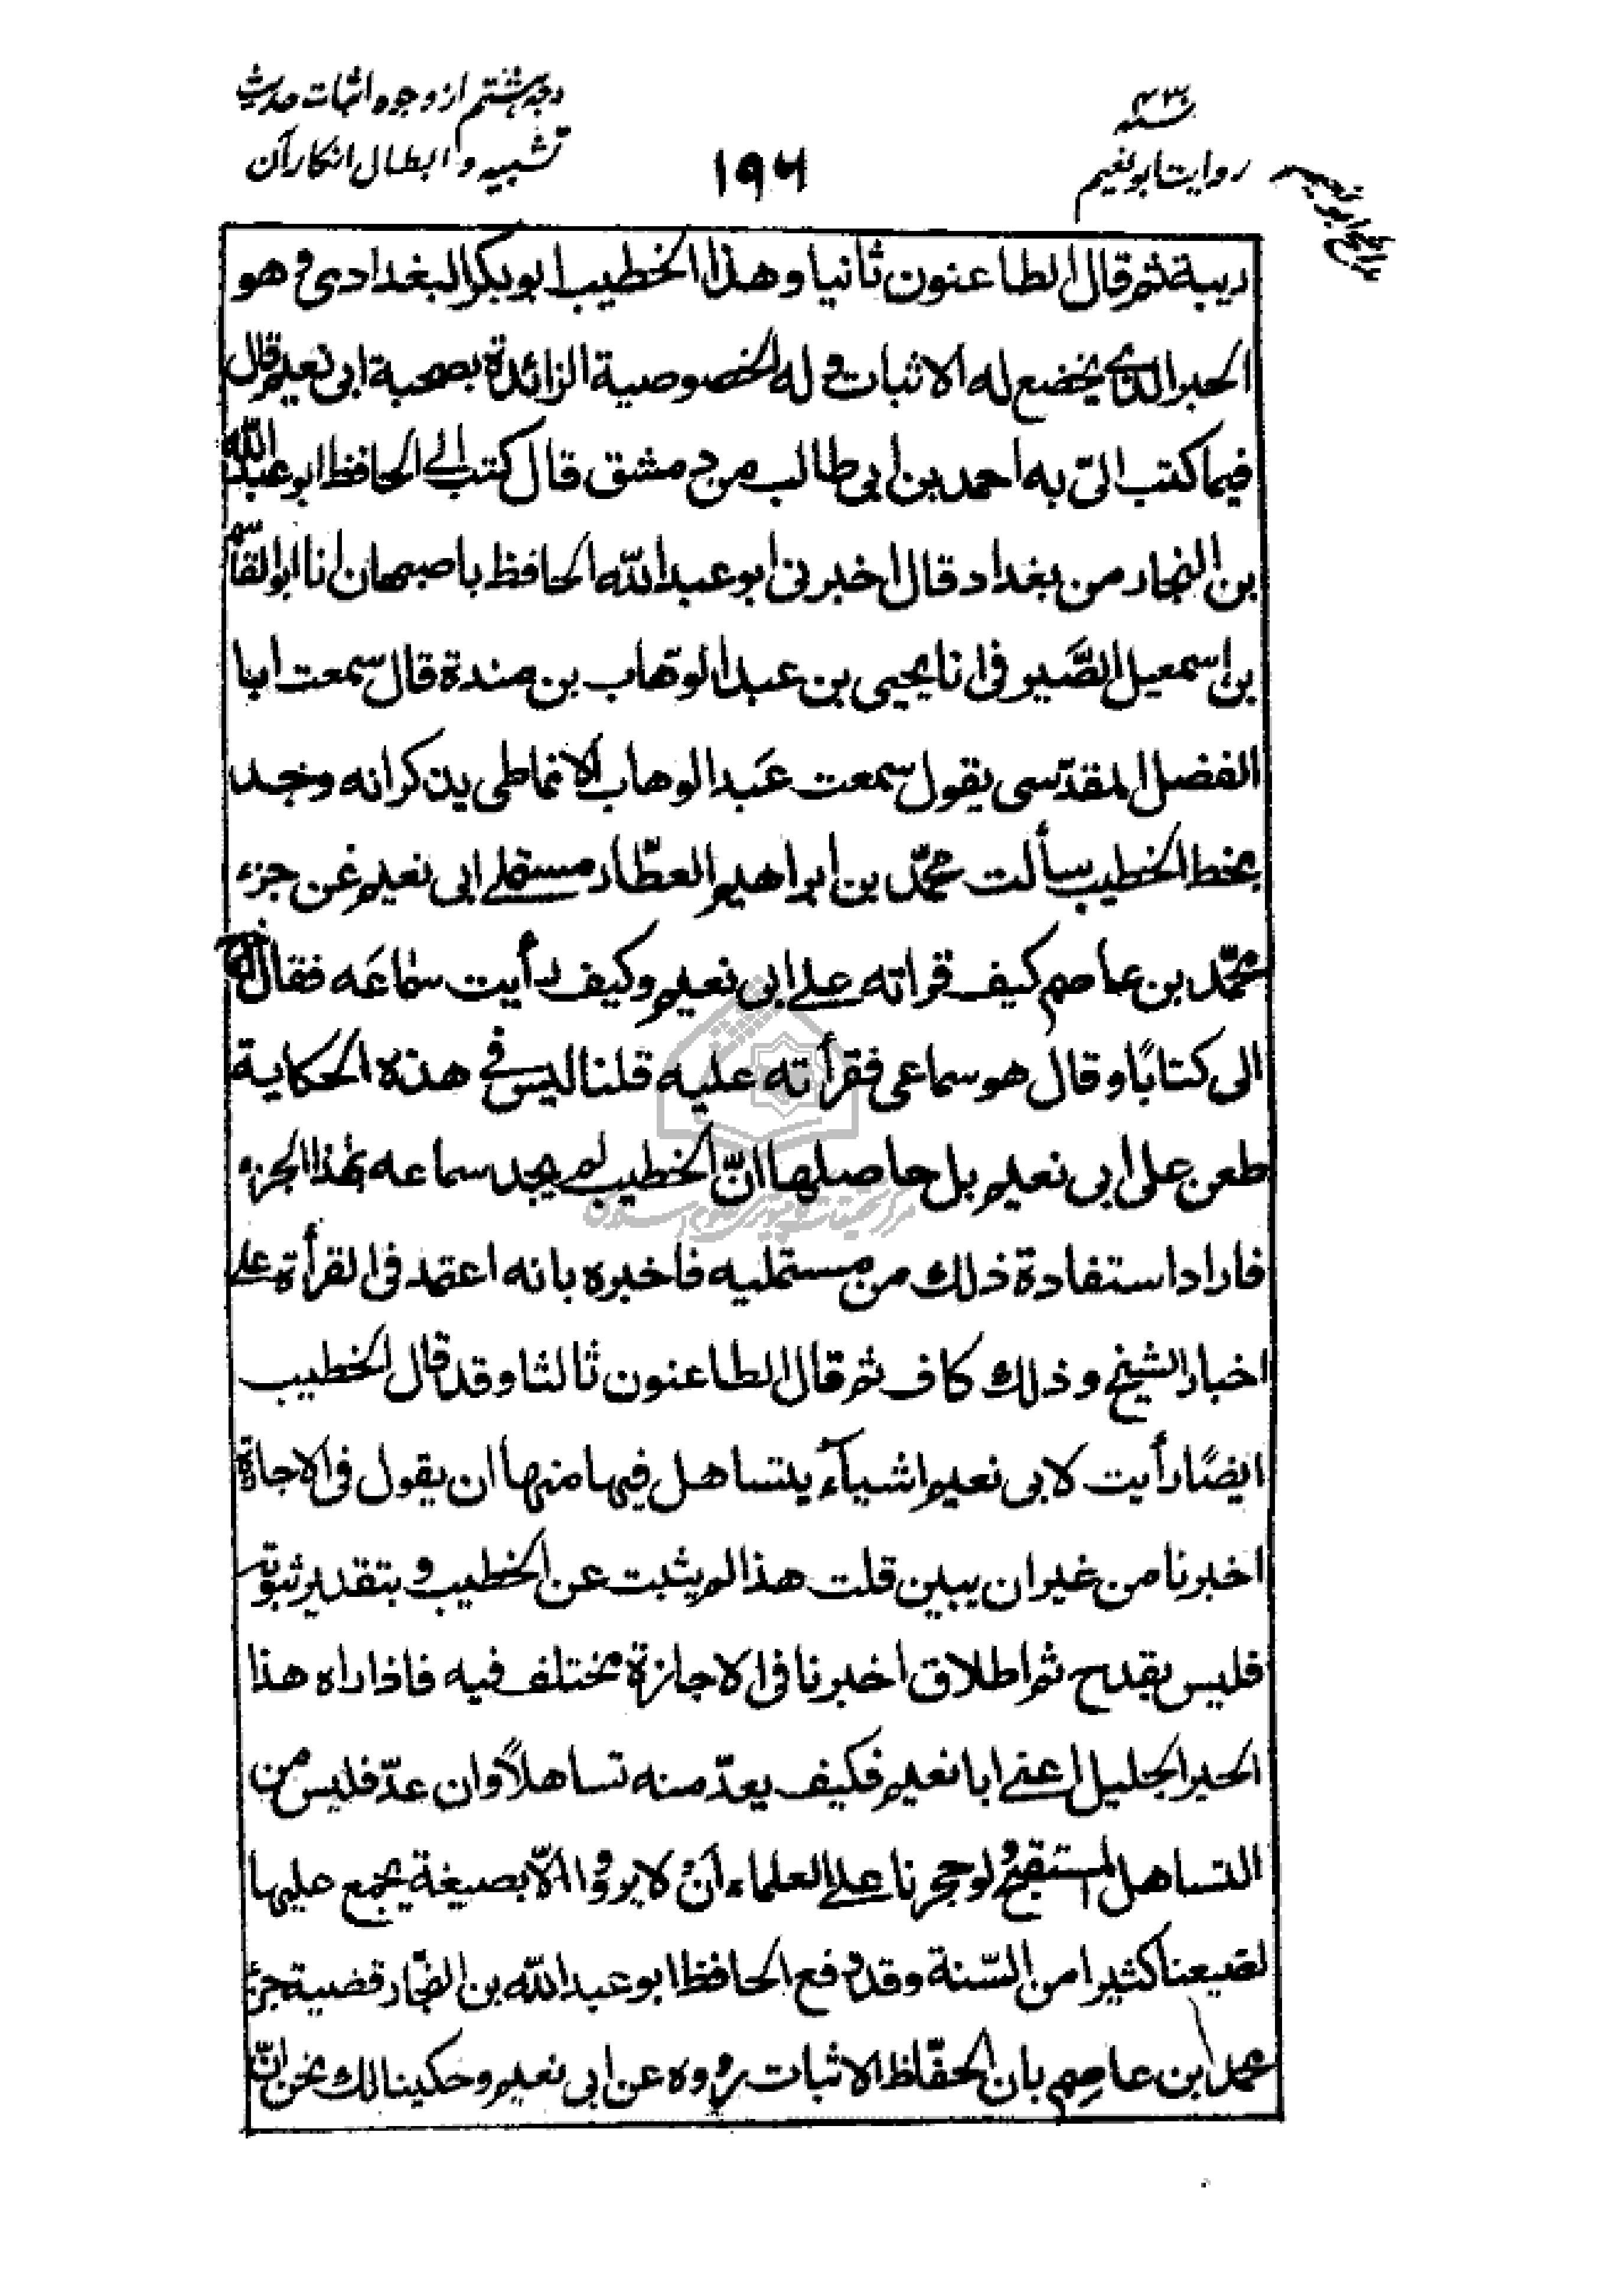 سنه ۴۳۰
روایت ابو نعیم
وجه هشتم از وجوه اثبات حدیث
تشبیه و ابطال انکار آن
۱۹۶
ريبة ثم قال الطاعنون ثانيا وهذا الخطيب ابو بكر البغدادى و هو
الحبر الذى يخضع له الاثبات و له الخصوصية الزائدة بصحبة ابى نعيم قال
فيما كتب الىّ به احمد بن ابى طالب من دمشق قال كتب الى الحافظ ابو عبد الله
بن النجار من بغداد قال اخبرنى ابو عبد الله الحافظ باصبهان انا ابو القاسم
بن إسمعيل الصَّيرفى انا يحيى بن عبد الوهّاب بن مندة قال سمعت ابا
الفضل المقدّسى يقول سمعت عَبد الوهاب الانماطى يذكر انه وجد
بخط الخطيب سألت محمّد بن ابراهيم العطّار مستملى ابى نعيم عن جزء
محمّد بن عاصم كيف قراته على ابى نعيم وكيف رأيت سماعَه فقال اخرج
الى كتابًا وقال هو سماعى فقرأته عليه قلنا ليس فى هذه الحكاية
طعن على ابى نعيم بل حاصلها انّ الخطيب لم يجد سماعه بهذا الجزء
فاراد استفادة ذلك من مستمليه فاخبره بانه اعتمد فى القرأة على
اخبار الشيخ وذلك كاف ثم قال الطاعنون ثالثا وقد قال الخطيب
ايضًا رأيت لابى نعيم اشيآء يتساهل فيها منها ان يقول فى الاجازة
اخبرنا من غير ان يبين قلت هذا لم يثبت عن الخطيب و بتقدير ثبوته
فليس بقدح ثم اطلاق اخبرنا فى الاجازة مختلف فيه فاذا راه هذا
الحبر الجليل اعنى ابا نعيم فكيف يعدّ منه تساهلاً وان عدّ فليس من
التساهل المستقبح و لو حجرنا على العلماء اَنْ لا يرووا الّا بصيغة يجمع عليها
لضيعنا كثيرا من السّنة وقد دفع الحافظ ابو عبد الله بن النجّار قضية جزء
محمد ابن عاصم بان الحفّاظ الاثبات رووه عن ابى نعيم وحكينا لك نحن انّ
مرکز تحقیقات کامپیوتری علوم اسلامی